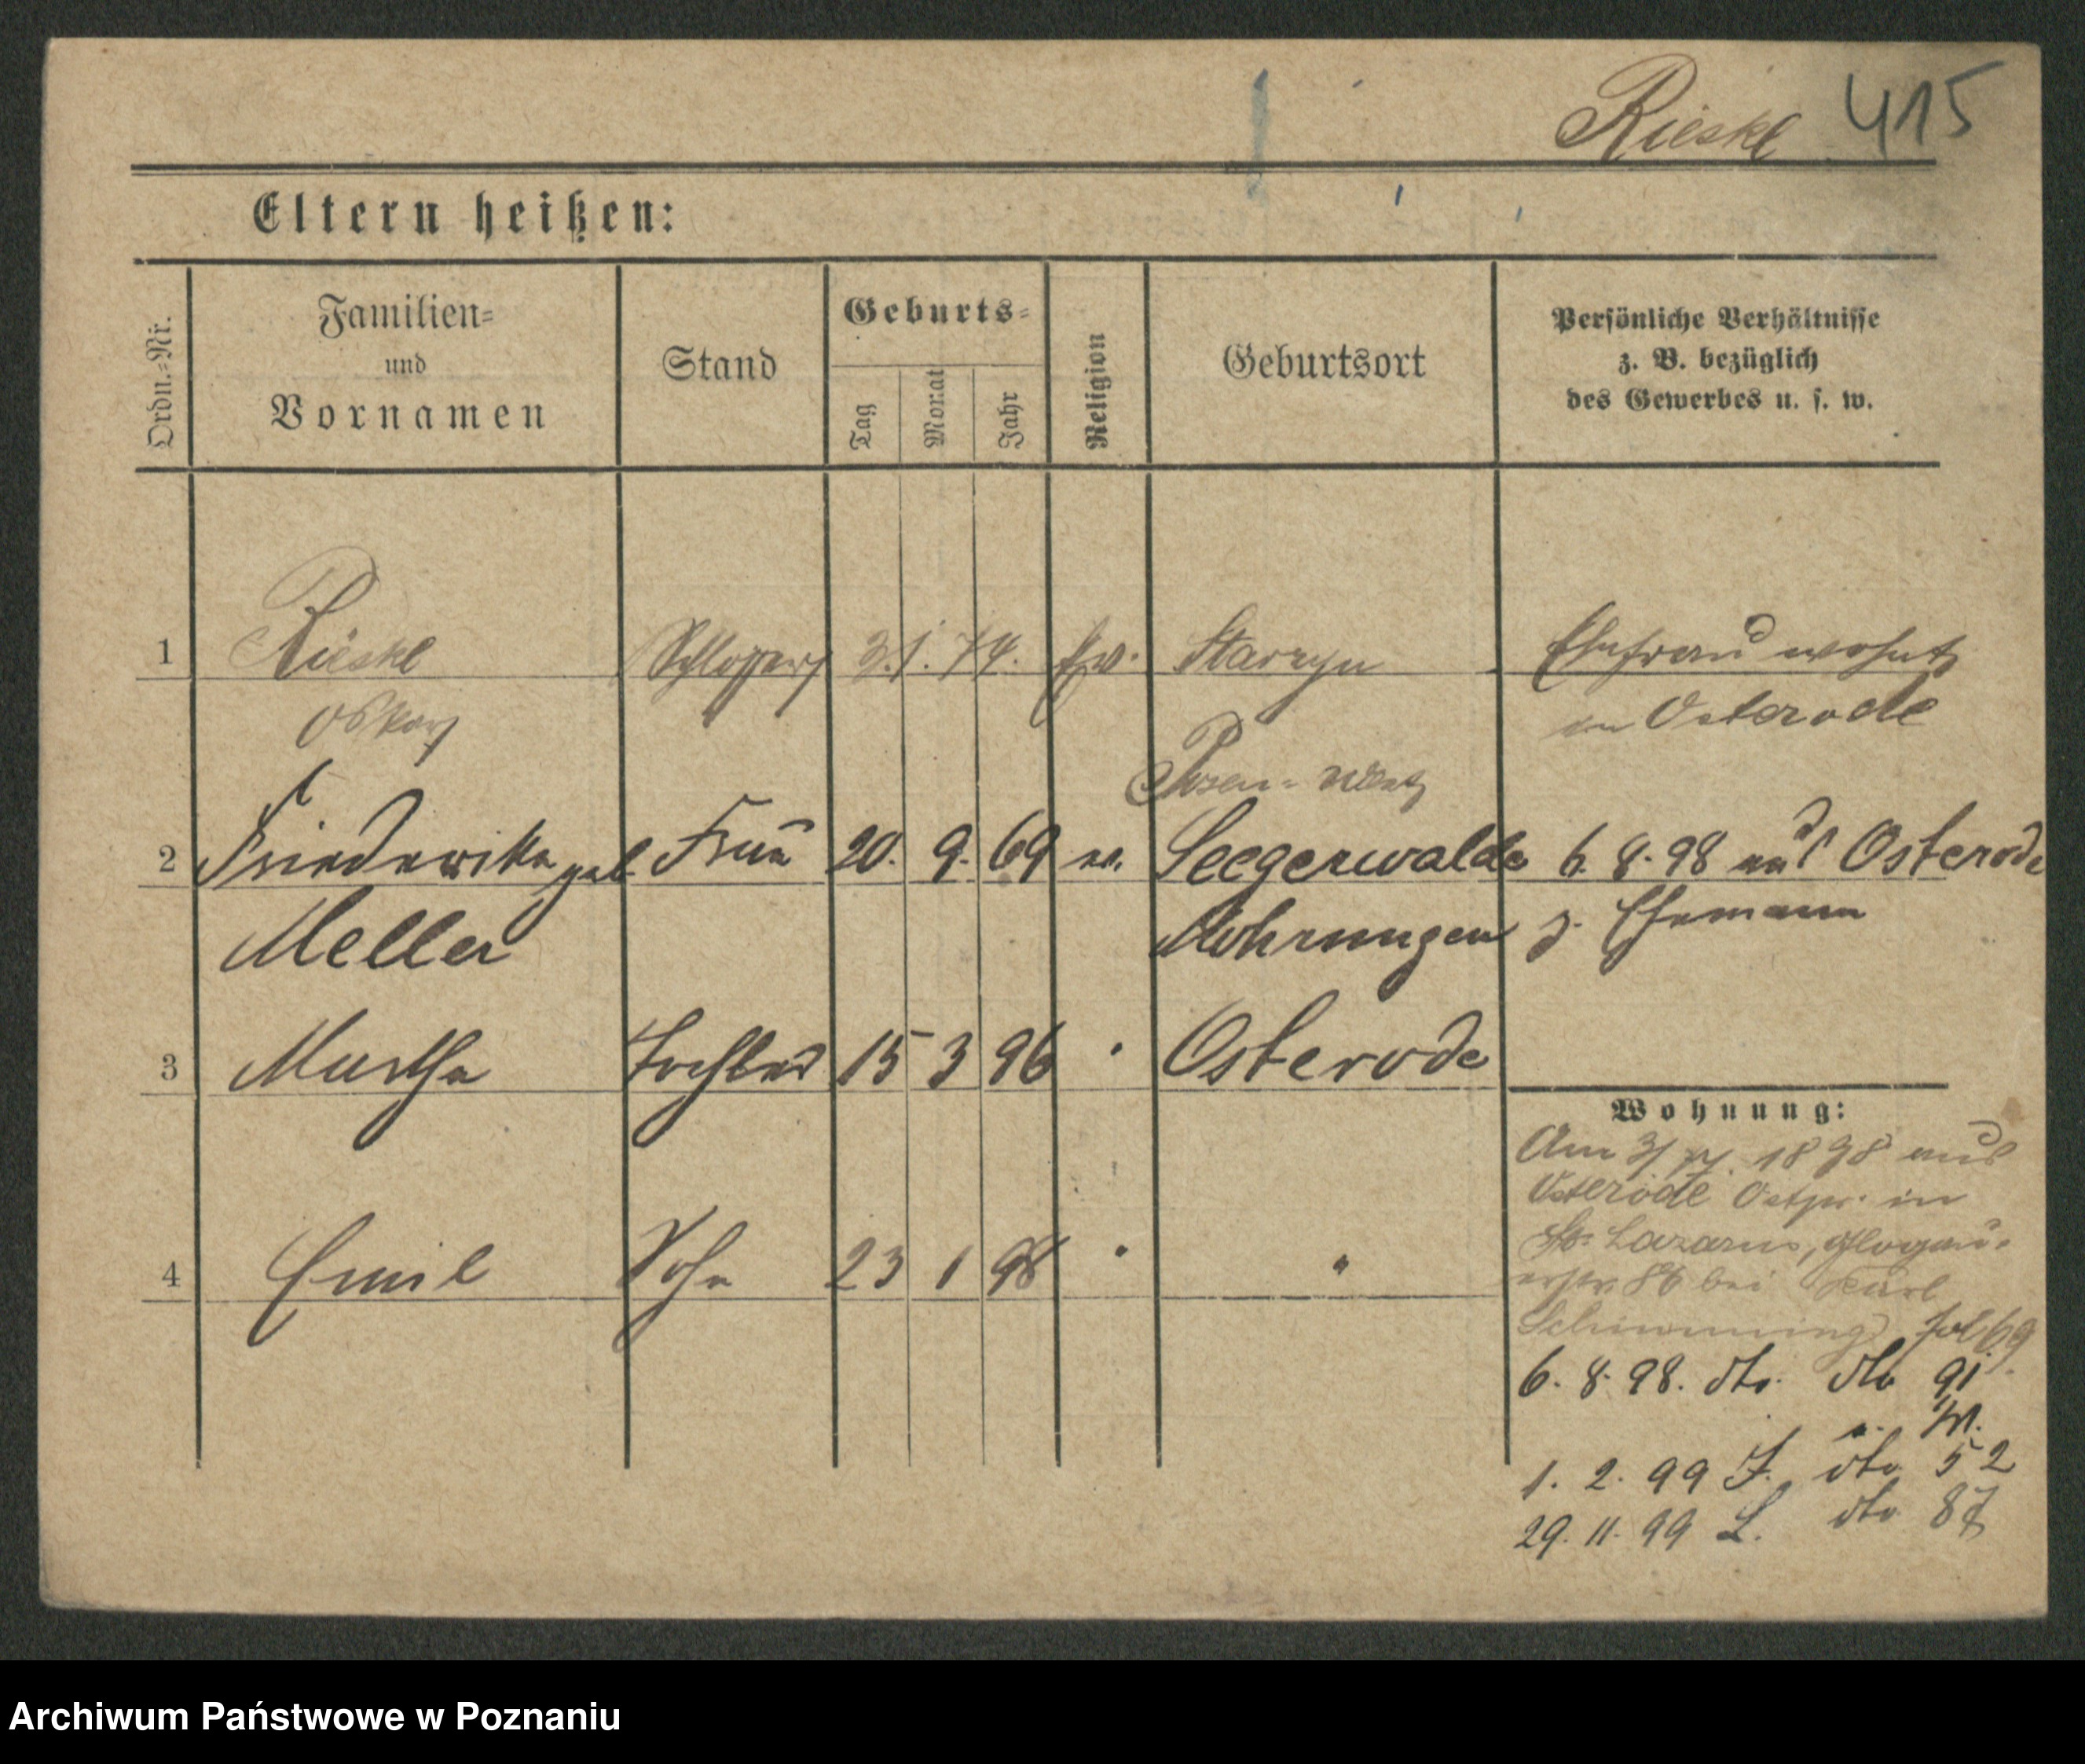 Rieske 415
Eltern heißen:
Ordn.-Nr.
Familien-
und
Vornamen
Stand
Geburts-
Tag
Monat
Jahr
Religion
Geburtsort
Persönliche Verhältnisse
z. B. bezüglich
des Gewerbes u. s. w.
1 Rieske Schlosser 3. 1. 74. Ev. Ehefrau wohnt
Oskar in Osterode
Posen-West
2 Friederike geb. Frau 20. 9. 69 ev. Seegerwalde 6. 8. 98 aus Osterode
Meller Mohrungen z. Ehemann
3 Martha Tochter 15 3 96 " Osterode
4 Emil Sohn 23 1 98 " "
Wohnung:
Am 1898 aus
Osterode Ostpr. in
St. Lazarus, Glogau-
erstr. 86 bei Karl
Schimming
6. 8. 98. dto. dto 91
1. 2. 99 J. dto 52
29. 11. 99 L. dto 87
Archiwum Państwowe w Poznaniu